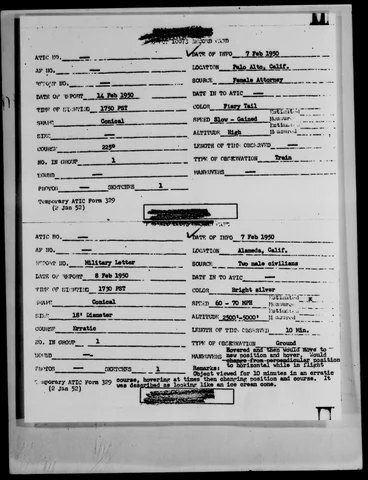 ATIC NO. — DATE OF INFO 7 Feb 1950
AF NO. — LOCATION Palo Alto, Calif.
REPORT NO. — SOURCE Female Attorney
DATE OF REPORT 14 Feb 1950 DATE IN TO ATIC —
TIME OF SIGHTING 1750 PST COLOR Fiery Tail
SHAPE Conical SPEED Slow - Gained
SIZE — ALTITUDE High
COURSE 225° LENGTH OF TIME OBSERVED —
NO. IN GROUP 1 TYPE OF OBSERVATION Train
SOUND — MANEUVERS —
PHOTOS — SKETCHES 1
Temporary ATIC Form 329
(2 Jan 52)
ATIC NO. — DATE OF INFO 7 Feb 1950
AF NO. — LOCATION Alameda, Calif.
REPORT NO. Military Letter SOURCE Two male civilians
DATE OF REPORT 8 Feb 1950 DATE IN TO ATIC —
TIME OF SIGHTING 1730 PST COLOR Bright silver
SHAPE Conical SPEED 60 - 70 MPH Estimated X
SIZE 18' Diameter ALTITUDE 2500'-5000' Measured
COURSE Erratic LENGTH OF TIME OBSERVED 10 Min.
NO. IN GROUP 1 TYPE OF OBSERVATION Ground
SOUND — MANEUVERS Hovered and then would move to
new position and hover. Would
change from perpendicular position
to horizontal while in flight
PHOTOS — SKETCHES 1 Remarks:
Object viewed for 10 minutes in an erratic
Temporary ATIC Form 329 course, hovering at times then changing position and course. It
(2 Jan 52) was described as looking like an ice cream cone.